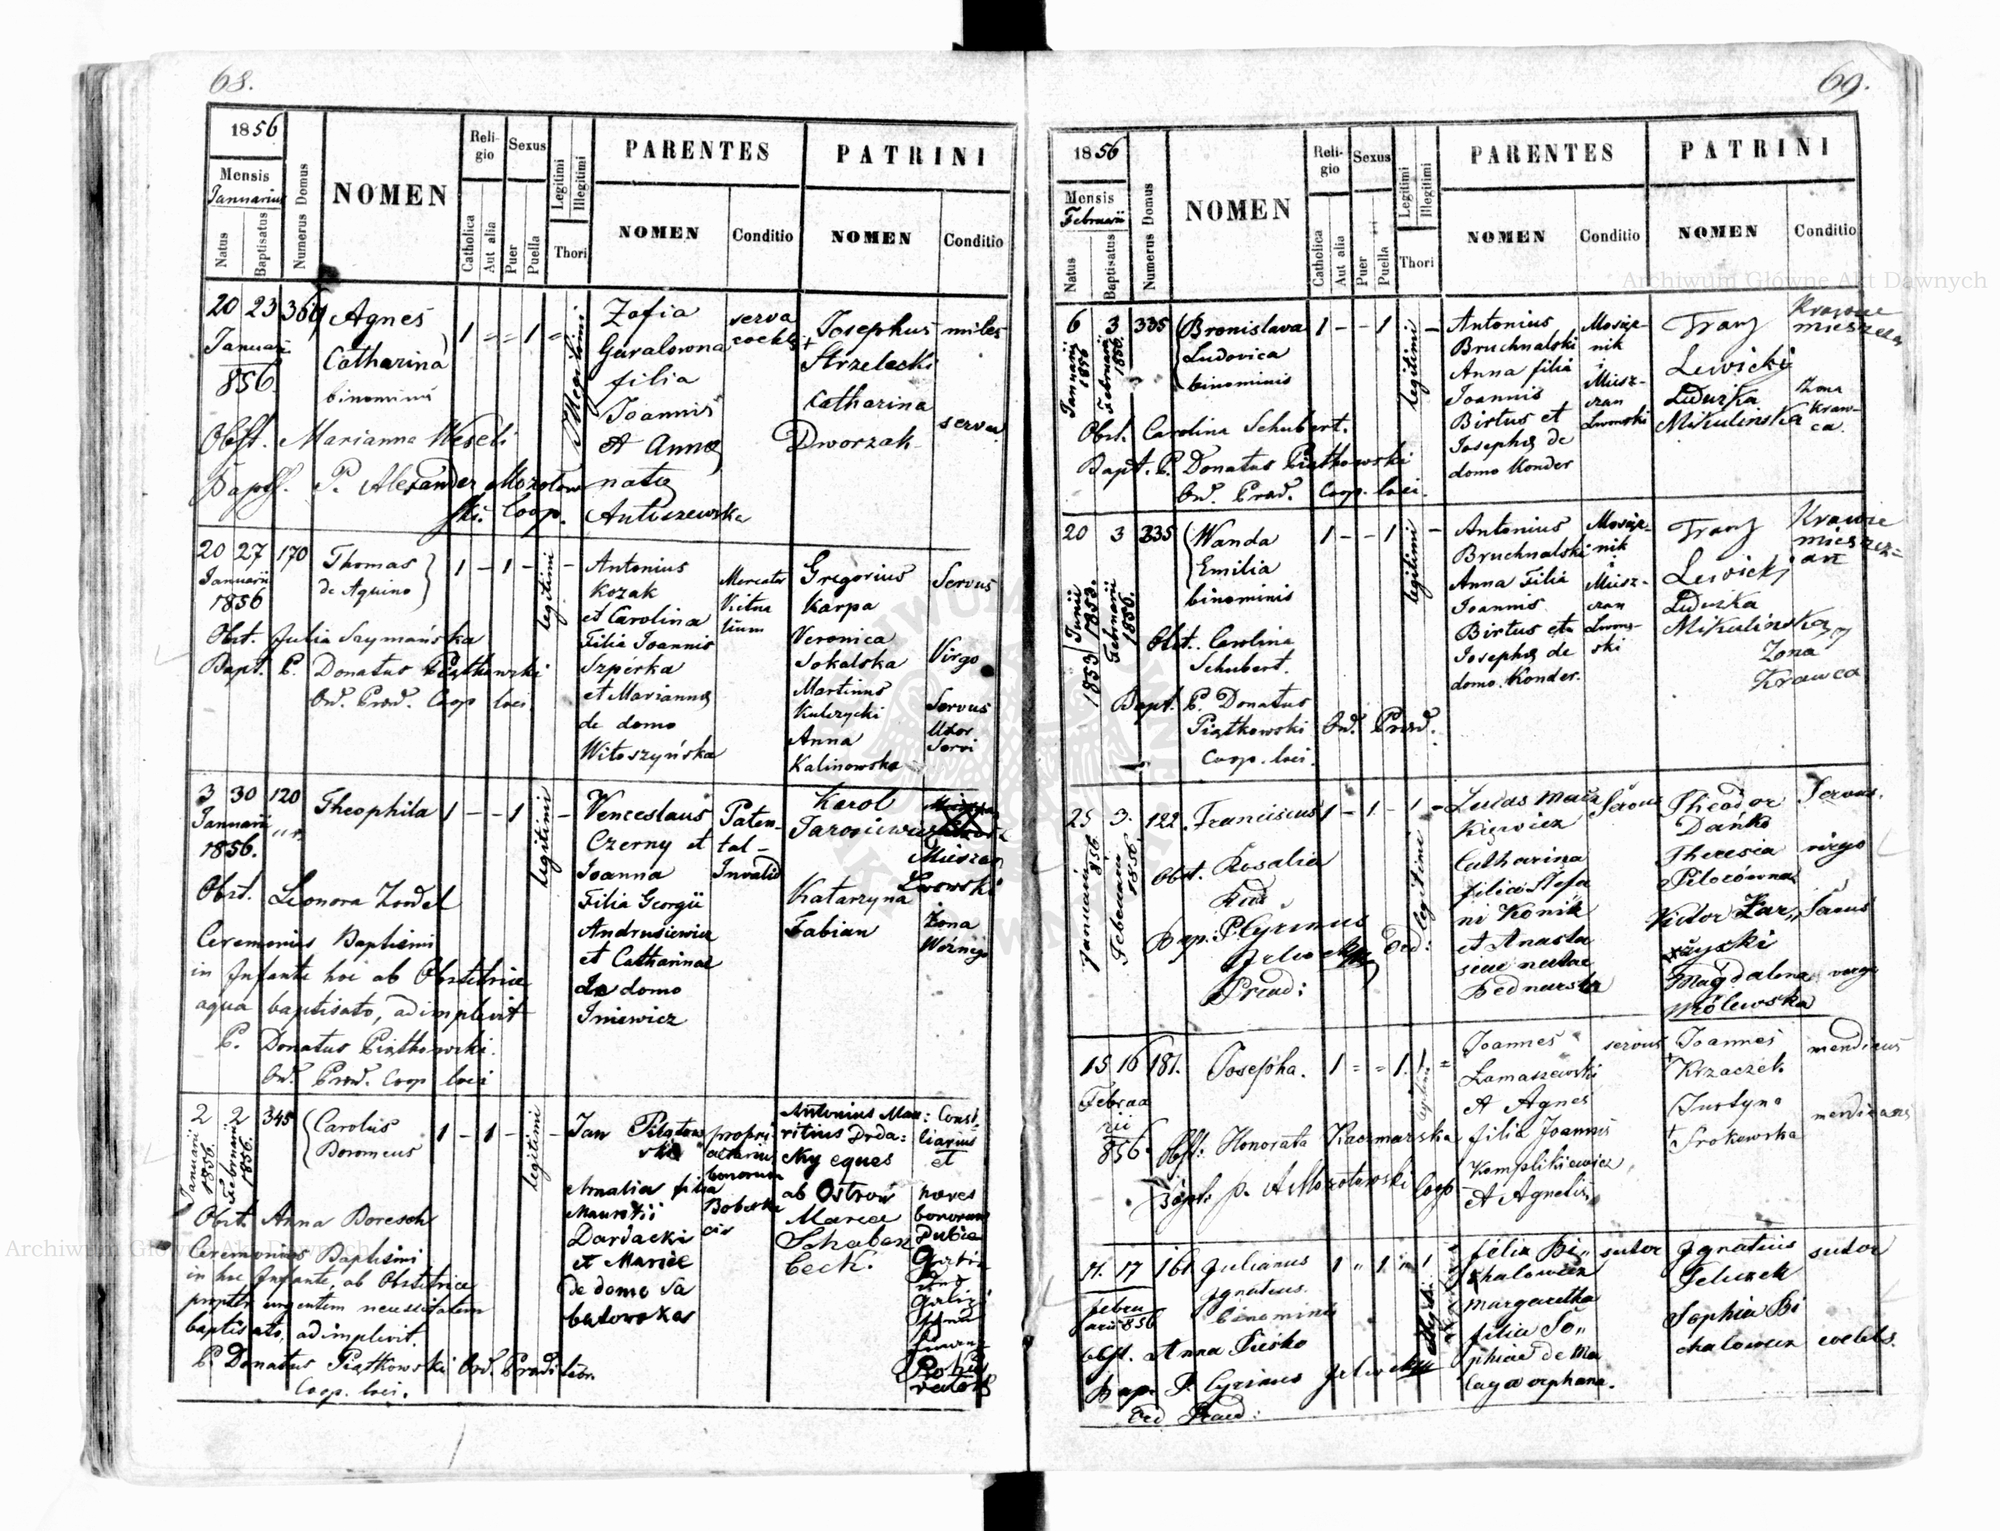 68.
1856
Mensis
Januarius
Natus
Baptisatus
Numerus Domus
NOMEN
Religio
Catholica
Aut alia
Sexus
Puer
Puella
Legitimi
Illegitimi
Thori
PARENTES
NOMEN
Conditio
PATRINI
NOMEN
Conditio
20 23 366 Agnes
Januarii
1856
Catharina
binomini
1 = = 1 =
Illegitimi
Zofia
Guralowna
filia
Joannis
et Annae
natae
Antuszewska
serva
Josephus
Strzelecki
Catharina
Dworzak
miles
serva
Obst. Marianna Weseli
Bapt. P. Alexander Mozotow
ski. Coop.
20 27 170 Thomas
Januarii
1856
de Aquino
1 - 1 - -
legitimi
Antonius
Kozak
et Carolina
Filia Joannis
Szpérka
et Marianna
de domo
Witoszyńska
Mercator
Victua
lium
Gregorius
Karpa
Veronica
Sokalska
Martinus
Kulczycki
Anna
Kalinowska
Servus
Virgo
Servus
Uxor
Servi
Obst. Julia Szymańska
Bapt. P. Donatus Piątkowski
Ord. Praed. Coop loci
3 30 120 Theophila 1 - - 1 -
Januarii
1856.
legitimi
Venceslaus
Czerny et
Joanna
Filia Georgii
Andrusiewicz
et Catharinae
de domo
Iniewicz
Paten-
tal-
Invalid
Karol
Jarosiewicz
Katarzyna
Fabian
Mieszcz
Lwowski
Żona
Woźnego
Obst. Leonora Zodel
Ceremonias Baptismi
in Infante hoc ab Obstetrice
aqua baptisato, adimplevit
P. Donatus Piątkowski.
Ord. Praed. Coop loci
2 2 345 Carolus
Januarii 1856.
Februarii 1856.
Boromeus
1 - 1 - -
legitimi
Jan
Amalia filia
Mauritii
Dardacki
et Mariae
de domo Sa
batowskas
propri
etarius
bonorum
Antonius Mau:
ritius Drda:
cky eques
ab Ostrow
Maria
Schaben
beck.
Consi
liarius
et
haeres
bonorum
Obst. Anna Boresch
Ceremonias Baptismi
in hoc Infante, ab Obstetrice
propter urgentem necessitatem
baptisato, adimplevit.
P. Donatus Piątkowski Ord. Praedi
Coop. loci.
69.
1856
Mensis
Februarii
Natus
Baptisatus
Numerus Domus
NOMEN
Religio
Catholica
Aut alia
Sexus
Puer
Puella
Legitimi
Illegitimi
Thori
PARENTES
NOMEN
Conditio
PATRINI
NOMEN
Conditio
6 3 335 Bronislava 1 - - 1 -
Januarii 1856
Februarii 1856.
Ludovica
binominis
legitimi
Antonius
Bruchnalski
Anna filia
Joannis
Birtus et
Josephae de
domo Konder
Mosięż-
nik
i
Miesz-
czan
Lwowski
Franz
Lewicki
Ludwika
Mikulinska
Krawiec
mieszczan
Żona
Kraw-
ca.
Obst. Carolina Schubert.
Bapt. P. Donatus Piątkowski
Ord. Praed. Coop. loci.
20 3 335 Wanda 1 - - 1 -
Junii 1853.
Februarii 1856.
1853
Emilia
binominis
legitimi
Antonius
Bruchnalski
Anna Filia
Joannis
Birtus et
Josephae de
domo. Konder.
Mosięż-
nik
Miesz-
czan
Lwow-
ski
Franz
Lewicki
Ludwika
Mikulińska
Żona
Krawca
Krawiec
mieszcz=
an
Obst. Carolina
Schubert.
Bapt. P. Donatus
Piątkowski Ord. Praed.
Coop. loci.
25 3. 122. Franciscus 1 - 1 - 1 -
Januarii 856.
Februarii 1856.
legitimi
Lucas Mać
kiewicz
Catharina
filia Stefa
ni Konik
et Anasta
siae natae
Bednarska
Servus
Theodor
Dańko
Theresia
Pilocówna
Victor Zar,,
żyski
Magdalena
Mrólewska
Servus.
virgo
Servus
virgo
Obst. Rosalia
Bap: P. Cyrinus
Ord:
Praed:
15 16 181. Josepha. 1 = = 1. 1. =
Februa
rii
856.
Joannes
Łamaszewski
et Agnes
filia Joannis
Komplikiewicz
et Agnetis
servus
Joannes
Krzaczek
Justyna
Srokowska
mendicus
mendicans
Obst: Honorata Kaczmarska
Bapt: p. A Mozotowski Coop
11. 17 161 Julianus 1 " 1 " 1
Febru
arii 856
Ignatius.
binominis
felix Bi,,
chalowicz
margaretha
filia So,,
phiae de Ma
laya orphana.
sutor
Ignatius
Feluzek
Sophia Bi
chalowicz
sutor
coelebs.
Obst. Anna Fiesko
Bap. P. Cyrinus
Ord Praed:
Archiwum Główne Akt Dawnych
Archiwum Główne Akt Dawnych